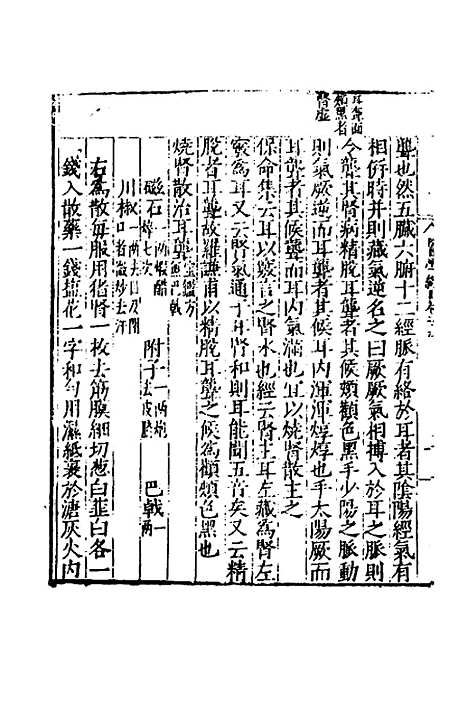 耳聾面
頰黑者
腎虛
聾也然五臟六腑十二經脈有絡於耳者其陰陽經氣有
相併時并則藏氣逆名之曰厥厥氣相搏入於耳之脈則
令聾其腎病精脫耳聾者其候頰顴色黑手少陽之脈動
則氣厥逆而耳聾者其候耳內渾渾焞焞也手太陽厥而
耳聾者其候聾而耳內氣滿也宜以燒腎散主之
保命集云耳以竅言之腎水也經云腎主耳左藏為腎左
竅為耳又云腎氣通于耳腎和則耳能聞五音矣又云精
脫者耳聾故羅謙甫以精脫耳聾之候為顴頰色黑也
燒腎散治耳聾
磁石一兩醋
淬七次 附子一兩炮
去皮臍 巴戟一
兩
川椒一兩去目及閉
口者微炒去汗
右為散每服用猪腎一枚去筋膜細切葱白韭白各一
錢入散藥一錢塩花一字和勻用濕紙裹於溏灰火內